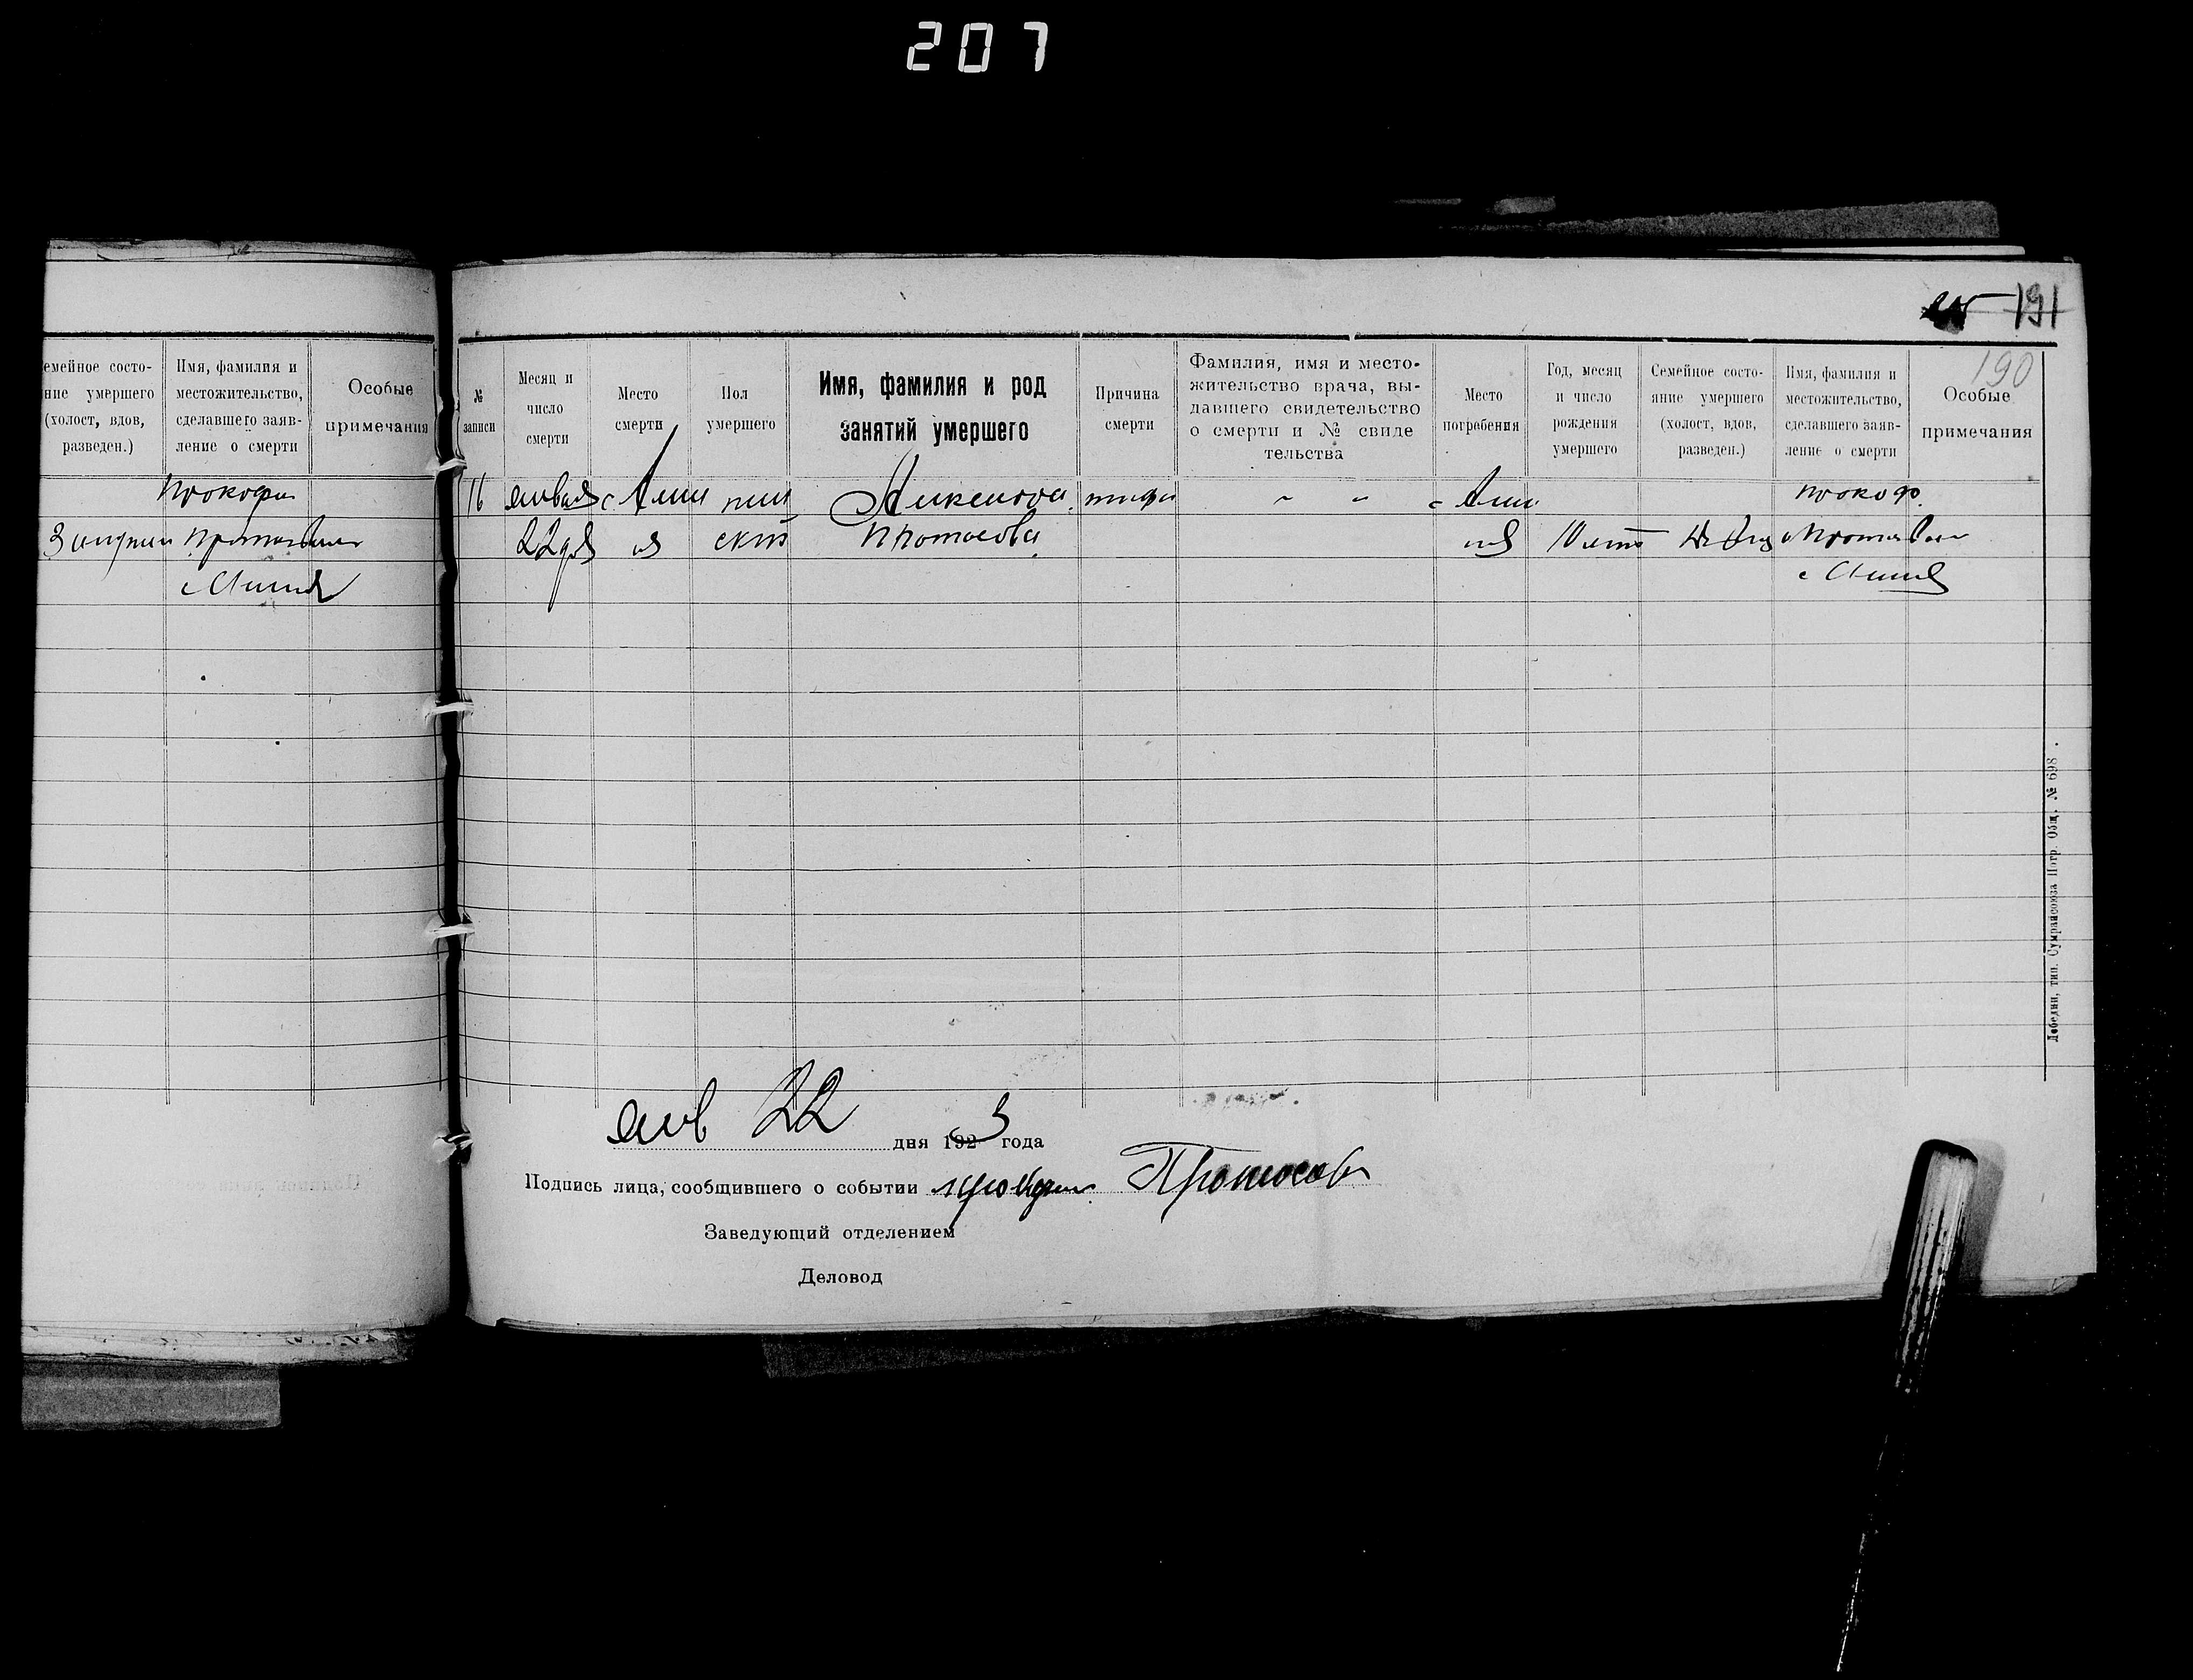 207
191
190
емейное состо-
ние умершего
(холост, вдов,
разведен.)
Имя, фамилия и
местожительство,
сделавшего заяв-
ление о смерти
Особые
примечания
Прокофи
с
№
записи
Месяц и
число
смерти
Место
смерти
Пол
умершего
Имя, фамилия и род
занятий умершего
Причина
смерти
Фамилия, имя и место-
жительство врача, вы-
давшего свидетельство
о смерти и № свиде
тельства
Место
погребения
Год, месяц
и число
рождения
умершего
Семейное состо-
яние умершего
(холост, вдов,
разведен.)
Имя, фамилия и
местожительство,
сделавшего заяв-
ление о смерти
Особые
примечания
16 января с тифа " " с Прокоф
22 дня ский Протосова 10 лет
с
янв 22 дня 1923 года
Подпись лица, сообщившего о событии Протосов
Заведующий отделением
Деловод
Лебедин, тип. Сумрайсоюза Потр. Общ. № 698.